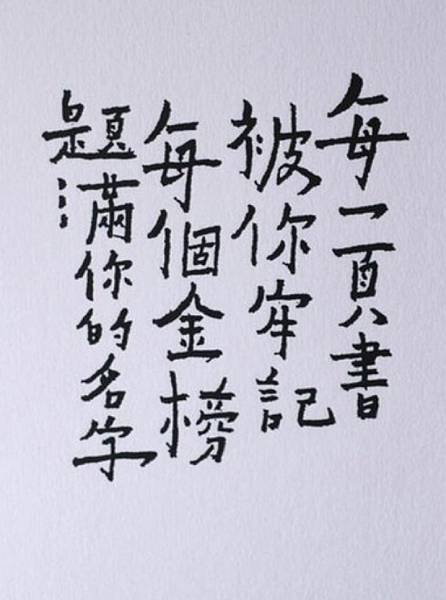 每一頁書
被你牢記
每個金榜
題滿你的名字